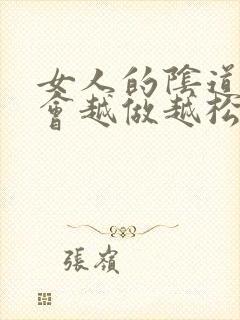 女人的陰道
會越做越松
張嶺